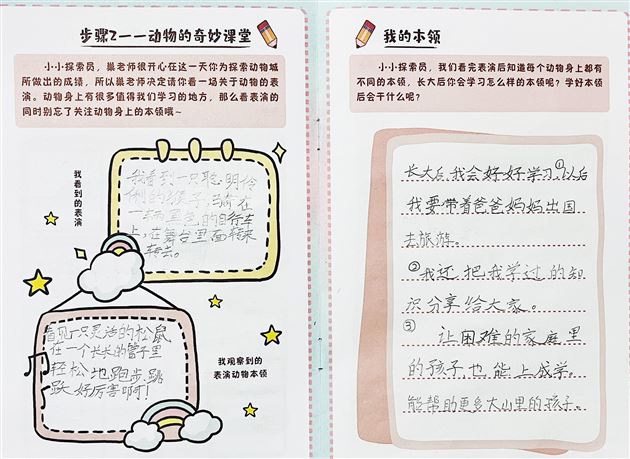 步骤2——动物的奇妙课堂
小小探索员，巢老师很开心在这一天你为探索动物城
所做出的成绩，所以巢老师决定请你看一场关于动物的表
演。动物身上有很多值得我们学习的地方，那么看表演的
同时别忘了关注动物身上的本领哦~
我看到的表演
我看到一只聪明伶
俐的猴子，骑在
一辆黑色的自行车
上，在舞台里面转来
转去。
看见一只灵活的松鼠
在一个长长的管子里
轻松地跑步、跳
跃好厉害啊！
我观察到的
表演动物本领
我的本领
小小探索员，我们看完表演后知道每个动物身上都有
不同的本领，长大后你会学习怎么样的本领呢？学好本领
后会干什么呢？
长大后，我会好好学习，①以后
我要带着爸爸妈妈出国
去旅游。
②我还把我学过的知
识分享给大家。
③让困难的家庭里
的孩子也能上成学。
能帮助更多大山里的孩子。